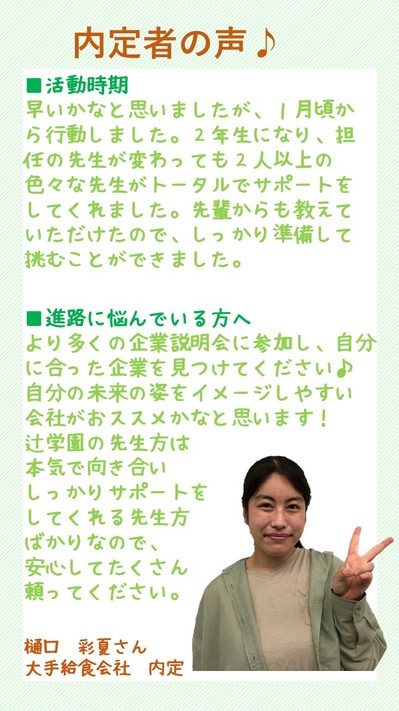 内定者の声♪
■活動時期
早いかなと思いましたが、１月頃か
ら行動しました。２年生になり、担
任の先生が変わっても２人以上の
色々な先生がトータルでサポートを
してくれました。先輩からも教えて
いただけたので、しっかり準備して
挑むことができました。
■進路に悩んでいる方へ
より多くの企業説明会に参加し、自分
に合った企業を見つけてください♪
自分の未来の姿をイメージしやすい
会社がおススメかなと思います！
辻学園の先生方は
本気で向き合い
しっかりサポートを
してくれる先生方
ばかりなので、
安心してたくさん
頼ってください。
樋口　彩夏さん
大手給食会社　内定